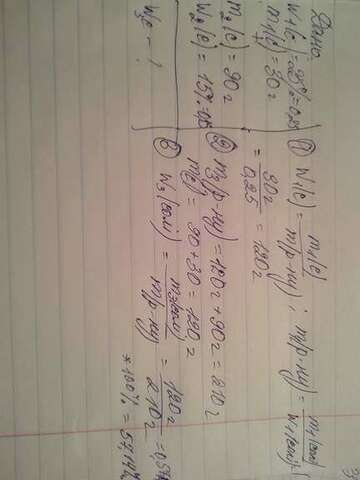 Дано:
W1(c) = 25% = 0,25
m1(c) = 30г
m2(c) = 90г
W2(c) = 15% = 0,15
W3c - ?
① W1(c) = m1(c) / m(р-ну) ; m(р-ну) = m1(солі) / W1(солі)
= 30г / 0,25 = 120г
② m3(р-ну) = 120г + 90г = 210г
m(c) = 90 + 30 = 120г
③ W3(солі) = m3(солі) / m(р-ну) = 120г / 210г = 0,57
* 100% = 57,14%